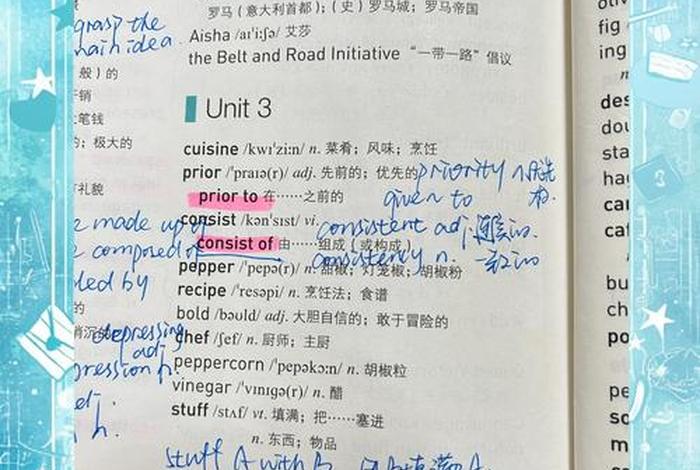 罗马（意大利首都）；（史）罗马城；罗马帝国
grasp the
main idea
Aisha /aɪ'iːʃə/ 艾莎
the Belt and Road Initiative “一带一路”倡议
般）的
Unit 3
笔钱
的；极大的
cuisine /kwɪ'ziːn/ n. 菜肴；风味；烹饪
prior /'praɪə(r)/ adj. 先前的；优先的 priority n.
礼貌
prior to 在……之前的 given to
consist /kən'sɪst/ vi. consistent adj.
made up of
consist of 由……组成（或构成） consistency n.
composed of
pepper /'pepə(r)/ n. 甜椒；灯笼椒；胡椒粉
by
recipe /'resəpi/ n. 烹饪法；食谱
bold /bəʊld/ adj. 大胆自信的；敢于冒险的
depressing
adj
chef /ʃef/ n. 厨师；主厨
peppercorn /'pepəkɔːn/ n. 胡椒粒
vinegar /'vɪnɪɡə(r)/ n. 醋
stuff /stʌf/ vt. 填满；把……塞进
n. 东西；物品
stuff A with B
fig
ing
n
des
dou
sta
ha
car
cat
bu
ch
po
pe